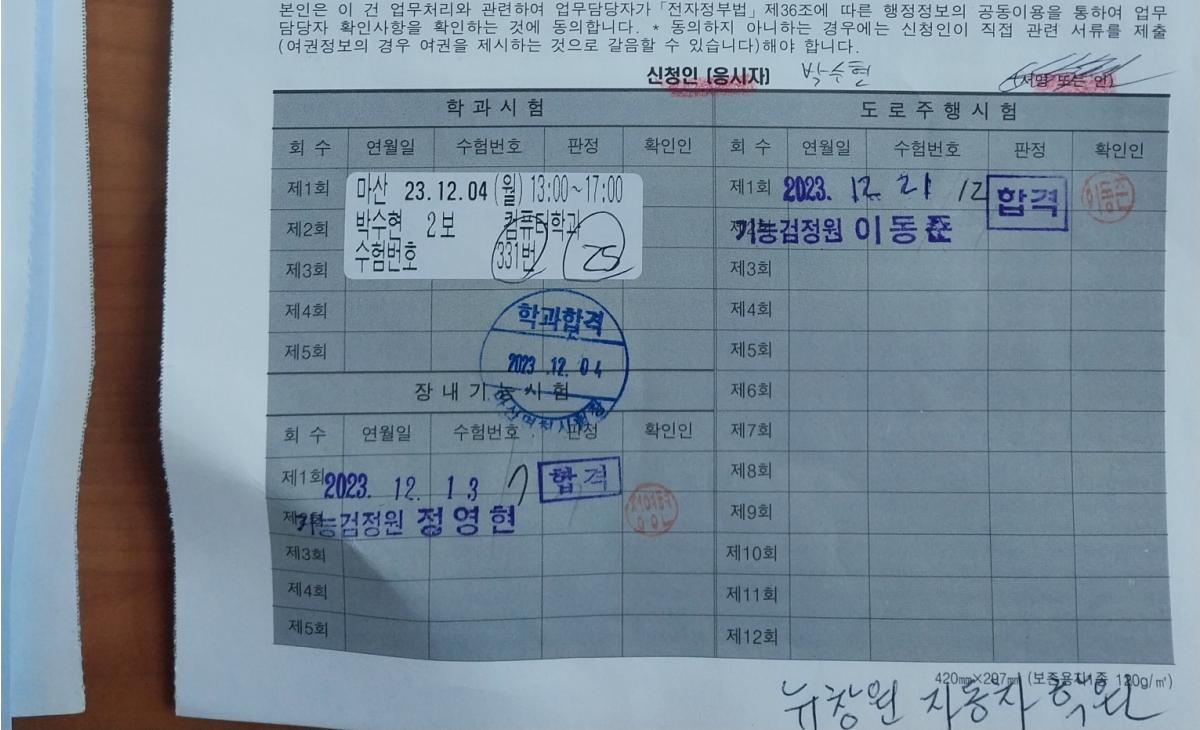 본인은 이 건 업무처리와 관련하여 업무담당자가 「전자정부법」 제36조에 따른 행정정보의 공동이용을 통하여 업무
담당자 확인사항을 확인하는 것에 동의합니다. * 동의하지 아니하는 경우에는 신청인이 직접 관련 서류를 제출
(여권정보의 경우 여권을 제시하는 것으로 갈음할 수 있습니다)해야 합니다.
신청인 (응시자) 박수현 (서명 또는 인)
학 과 시 험
회 수 연월일 수험번호 판정 확인인
제1회 마산 23.12.04 (월) 13:00~17:00
제2회 박수현 2보 컴퓨터학과
제3회 수험번호 331번 25
제4회
제5회
학과합격
2023 .12. 04
장 내 기 능 시 험
회 수 연월일 수험번호 판정 확인인
제1회 2023. 12. 13 7 합격
기능검정원 정영현
제3회
제4회
제5회
도 로 주 행 시 험
회 수 연월일 수험번호 판정 확인인
제1회 2023. 12. 21 12 합격
기능검정원 이동준
제3회
제4회
제5회
제6회
제7회
제8회
제9회
제10회
제11회
제12회
420㎜×297㎜ (보존용지1종 120g/㎡)
뉴창원 자동차 학원